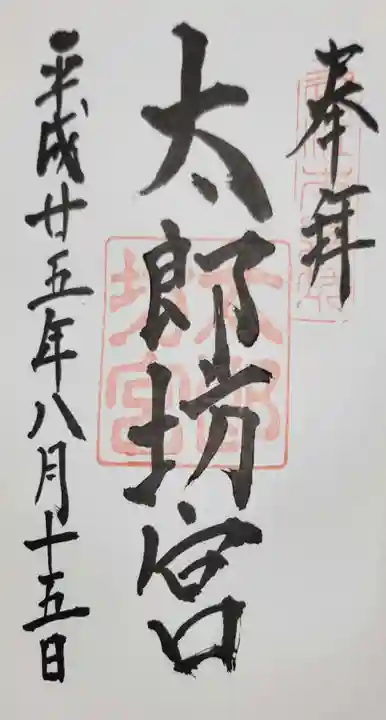 奉拜
太郎坊宮
太郎坊宮
平成廿五年八月十五日